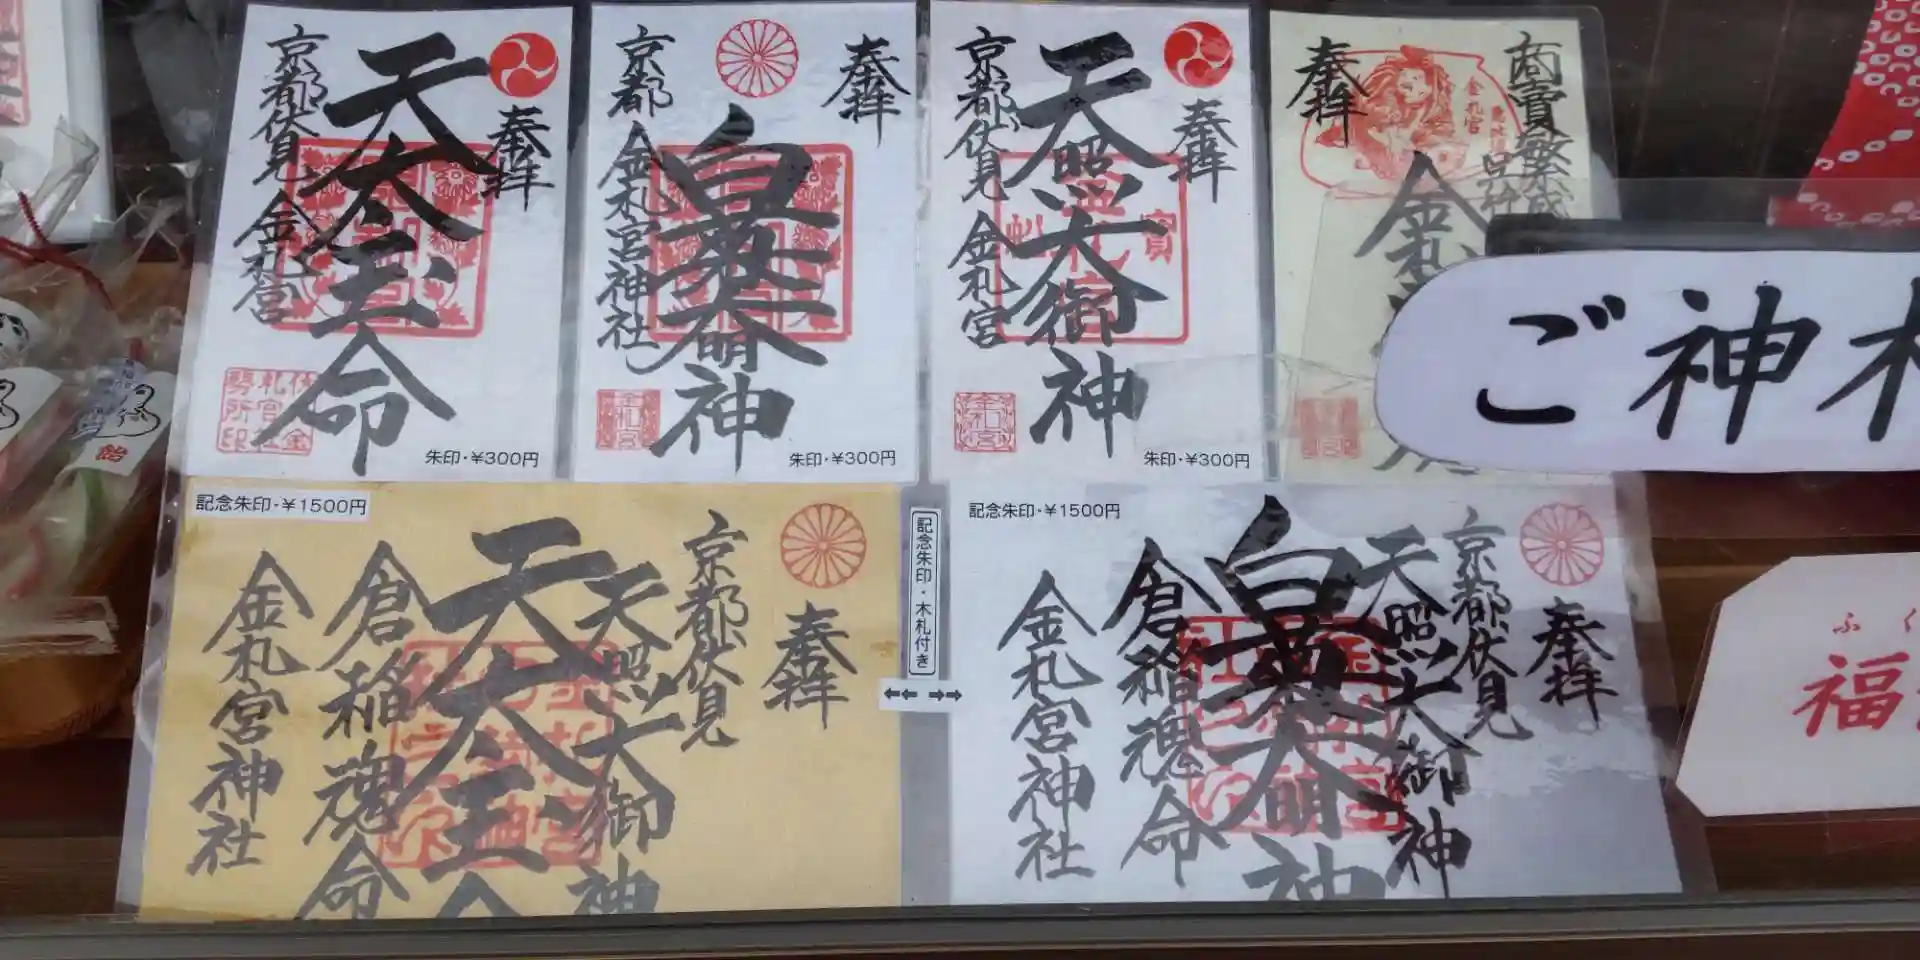 奉拝
天太玉命
京都伏見 金札宮
朱印・¥300円
奉拝
白菊大明神
京都 金札宮神社
金札宮
朱印・¥300円
奉拝
天照大御神
京都伏見 金札宮
金札宮
朱印・¥300円
商売繁盛
奉拝
金札宮
ご神木
記念朱印・¥1500円
奉拝
京都伏見
天照大御神
天太玉命
倉稲魂命
金札宮神社
記念朱印・木札付き
記念朱印・¥1500円
奉拝
京都伏見
天照大御神
白菊大明神
倉稲魂命
金札宮神社
ふく
福
飴